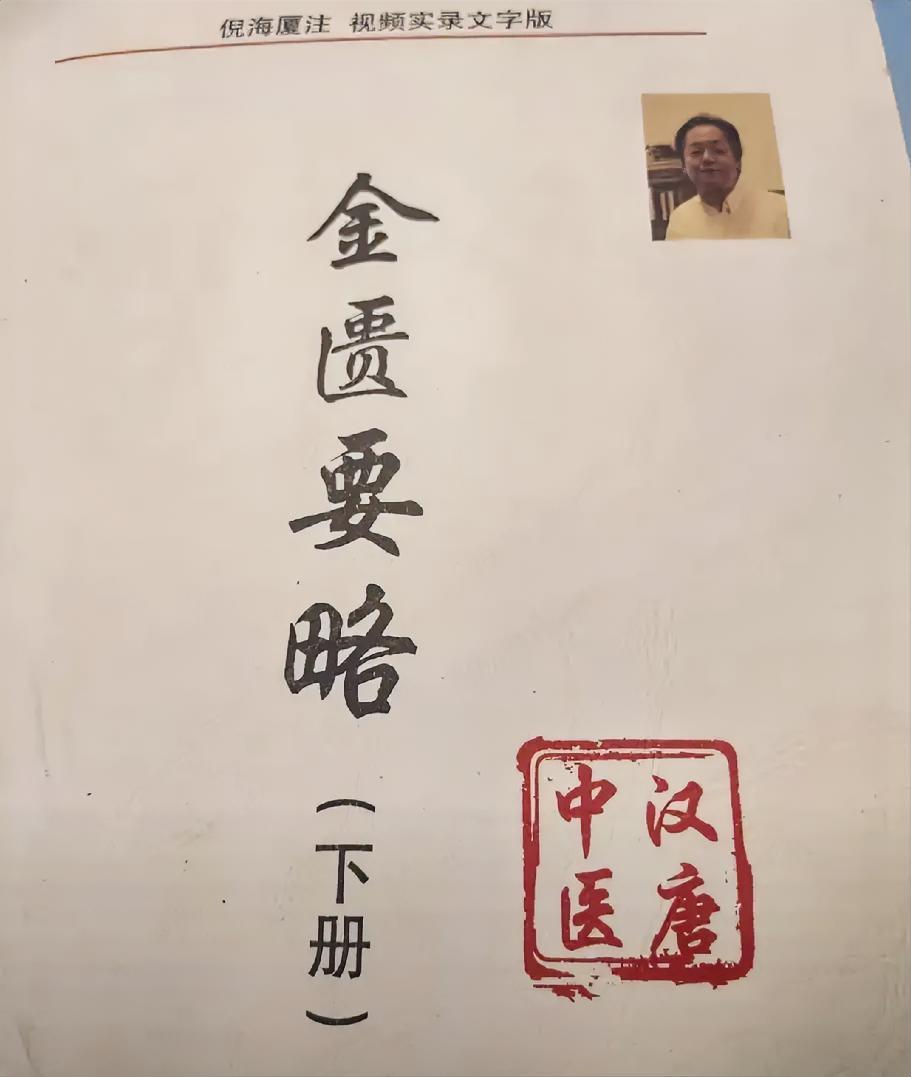 倪海厦注 视频实录文字版
金匮要略（下册）
汉唐
中医